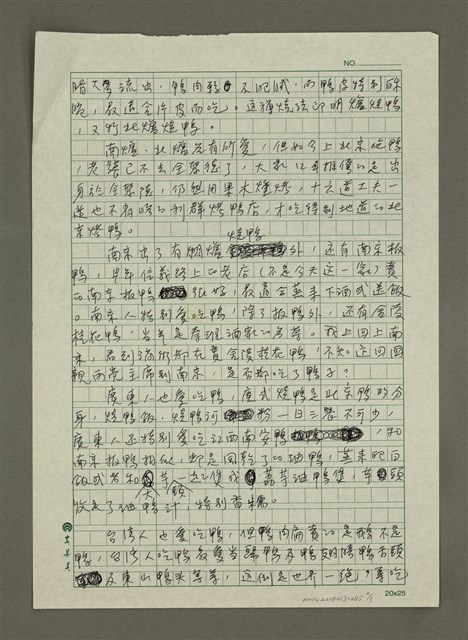 NO.
脂大量流出，鴨肉鬆不肥膩，而鴨皮特別酥
脆，最適合片皮而吃。這種燒法即明爐燒鴨
，又稱北爐燒鴨。
南爐、北爐各有所愛，但如今上北京吃鴨
，老饕已不去全聚德了，大
身於全聚德，仍然用果木爐烤，十六道工夫一
道也不省的利群烤鴨店，才吃得到地道的北
京烤鴨。
南京出了有燜爐燒鴨外，還有南京板
鴨，早年信義路上的老店（不是今天這一家）賣
的南京板鴨很好，最適合蒸來下酒或送飯
。南京人特別愛吃鴨，除了板鴨外，還有金陵
桂花鴨，當年是秦淮酒家的名菜。我上回上南
京，看到滿街都在賣金陵桂花鴨，不知這回連
主席到南京，是否都吃了鴨子？
廣東人也愛吃鴨，廣式燒鴨是北京鴨的分
身，燒鴨飯、燒鴨河粉一日三餐不可少，
廣東人還特別愛吃江西南安鴨，和
南京板鴨相似，都是風乾了的油鴨，蒸來配白
飯或者和芋頭一起煲成荔芋油鴨煲，芋頭
收足了油鴨汁，特別香糯。
台灣人也愛吃鴨，但鴨肉扁賣的是鵝不是
鴨，台灣人吃鴨最愛當歸鴨及鴨翅鴨舌頭
及東山鴨頭等等，這倒是世界一絕，專吃
20x25